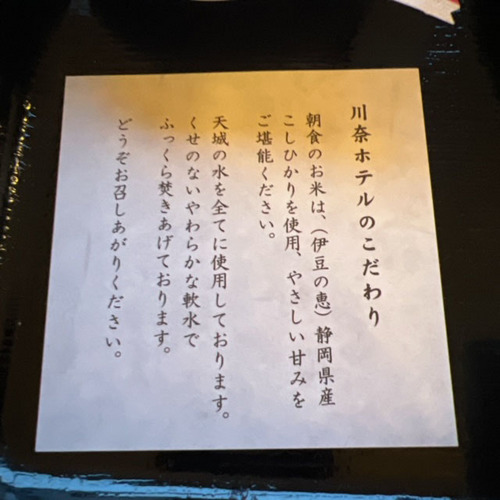 川奈ホテルのこだわり
朝食のお米は、（伊豆の恵）静岡県産
こしひかりを使用、やさしい甘みを
ご堪能ください。
天城の水を全てに使用しております。
くせのないやわらかな軟水で
ふっくら焚きあげております。
どうぞお召しあがりください。